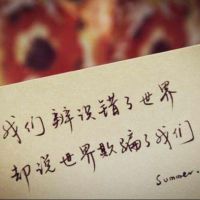 我们辨识错了世界
却说世界欺骗了我们
summer.